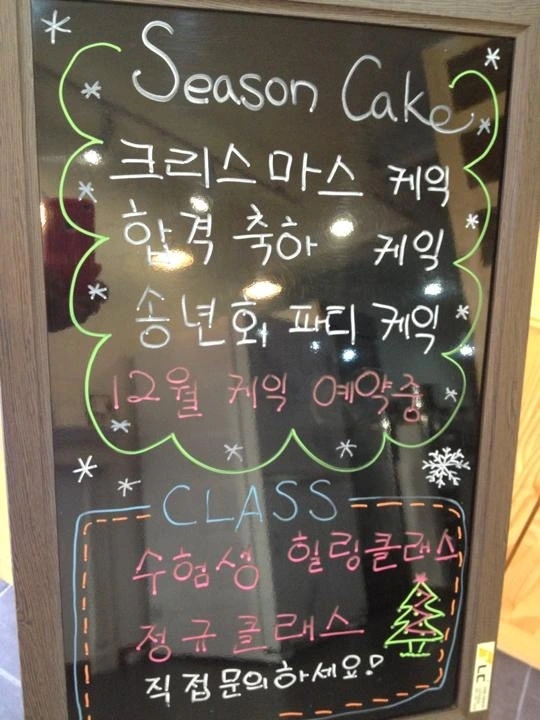 Season Cake
크리스마스 케익
합격 축하 케익
송년회 파티 케익
12월 케익 예약중
CLASS
수험생 힐링클래스
정규클래스
직접문의하세요!
LC